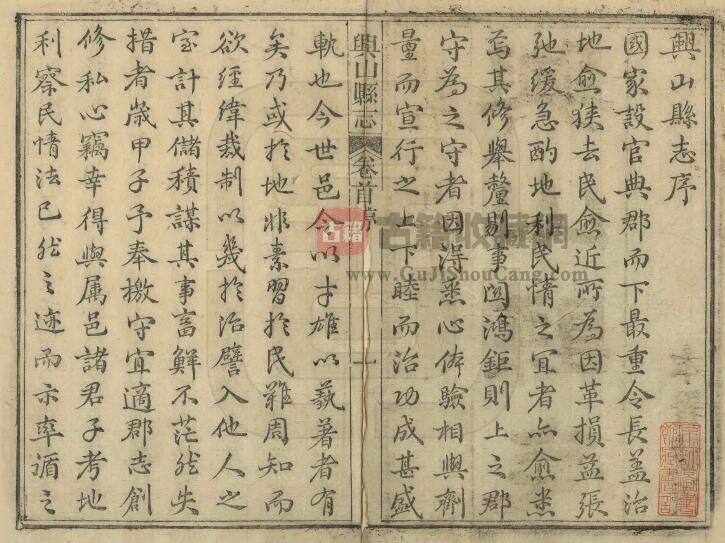 興山縣志序
國家設官典郡而下最重令長蓋治
地愈狹去民愈近所為因革損益張
弛緩急酌地利民情之宜者亦愈悉
焉其修舉釐剔事関鴻鉅則上之郡
守為之守者因得悉心体驗相與劑
量而宣行之上下睦而治功成甚盛
興山縣志 卷首 序 一
軌也今世邑令以才雄以蓺著者有
矣乃或於地非素習於民難周知而
欲經緯裁制以幾於治譬入他人之
室計其儲積謀其事畜鮮不茫然失
措者歲甲子予奉檄守宜適郡志創
修私心竊幸得與属邑諸君子考地
利察民情法已然之迹而示率循之
古籍 古籍收藏網
www.GuJiShouCang.com